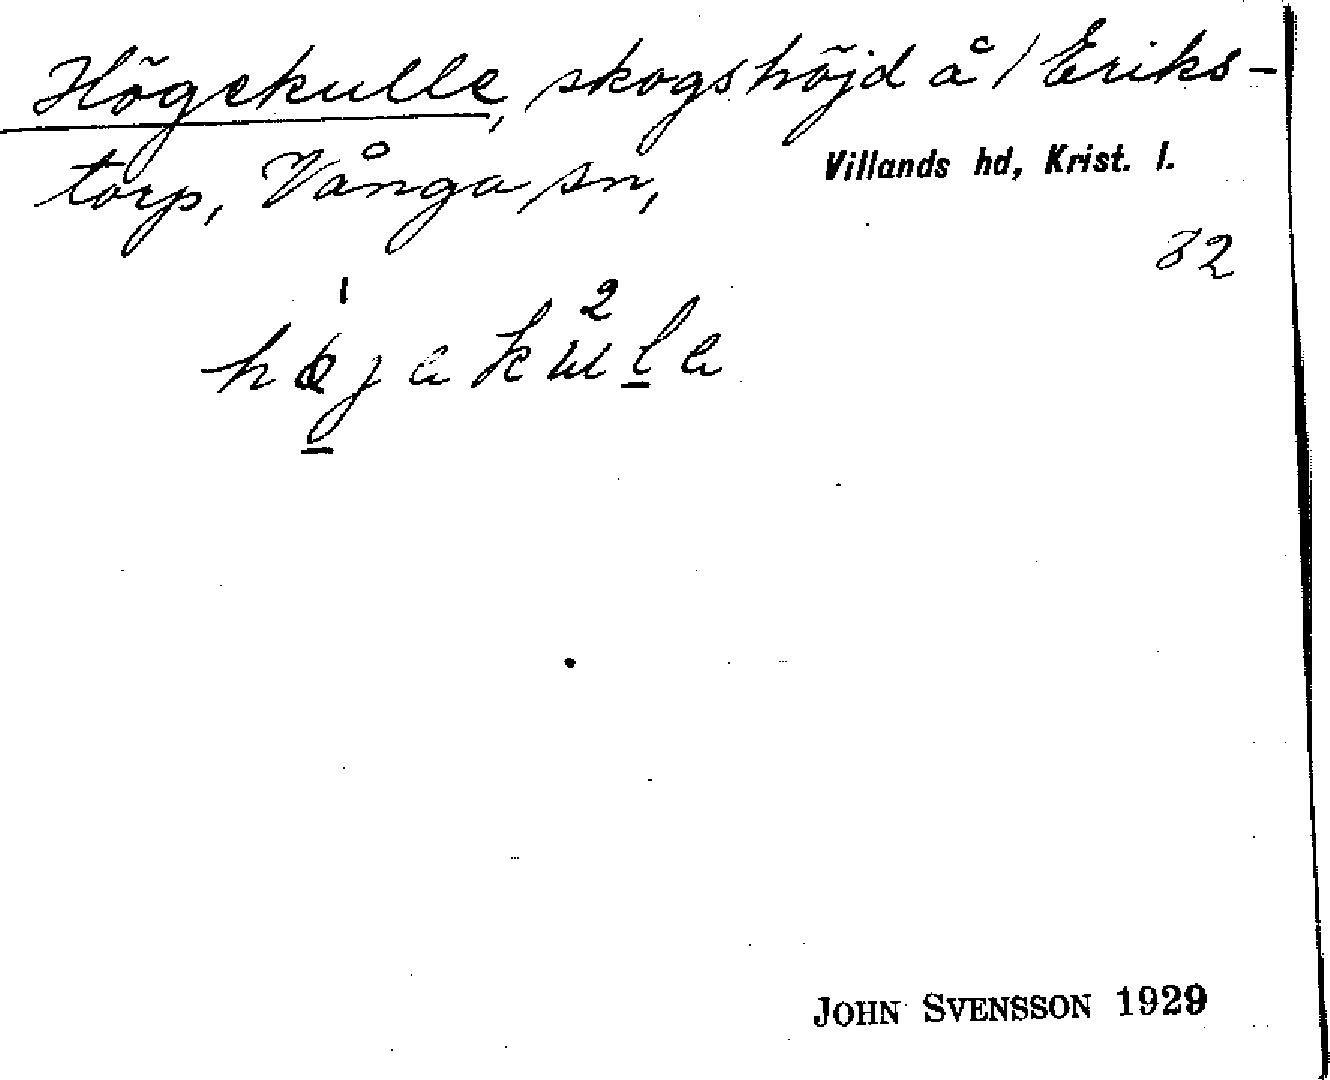 Högekulle, skogshöjd å / Eriks-
torp, Vånga sn, Villands hd, Krist. l.
32
JOHN SVENSSON 1929